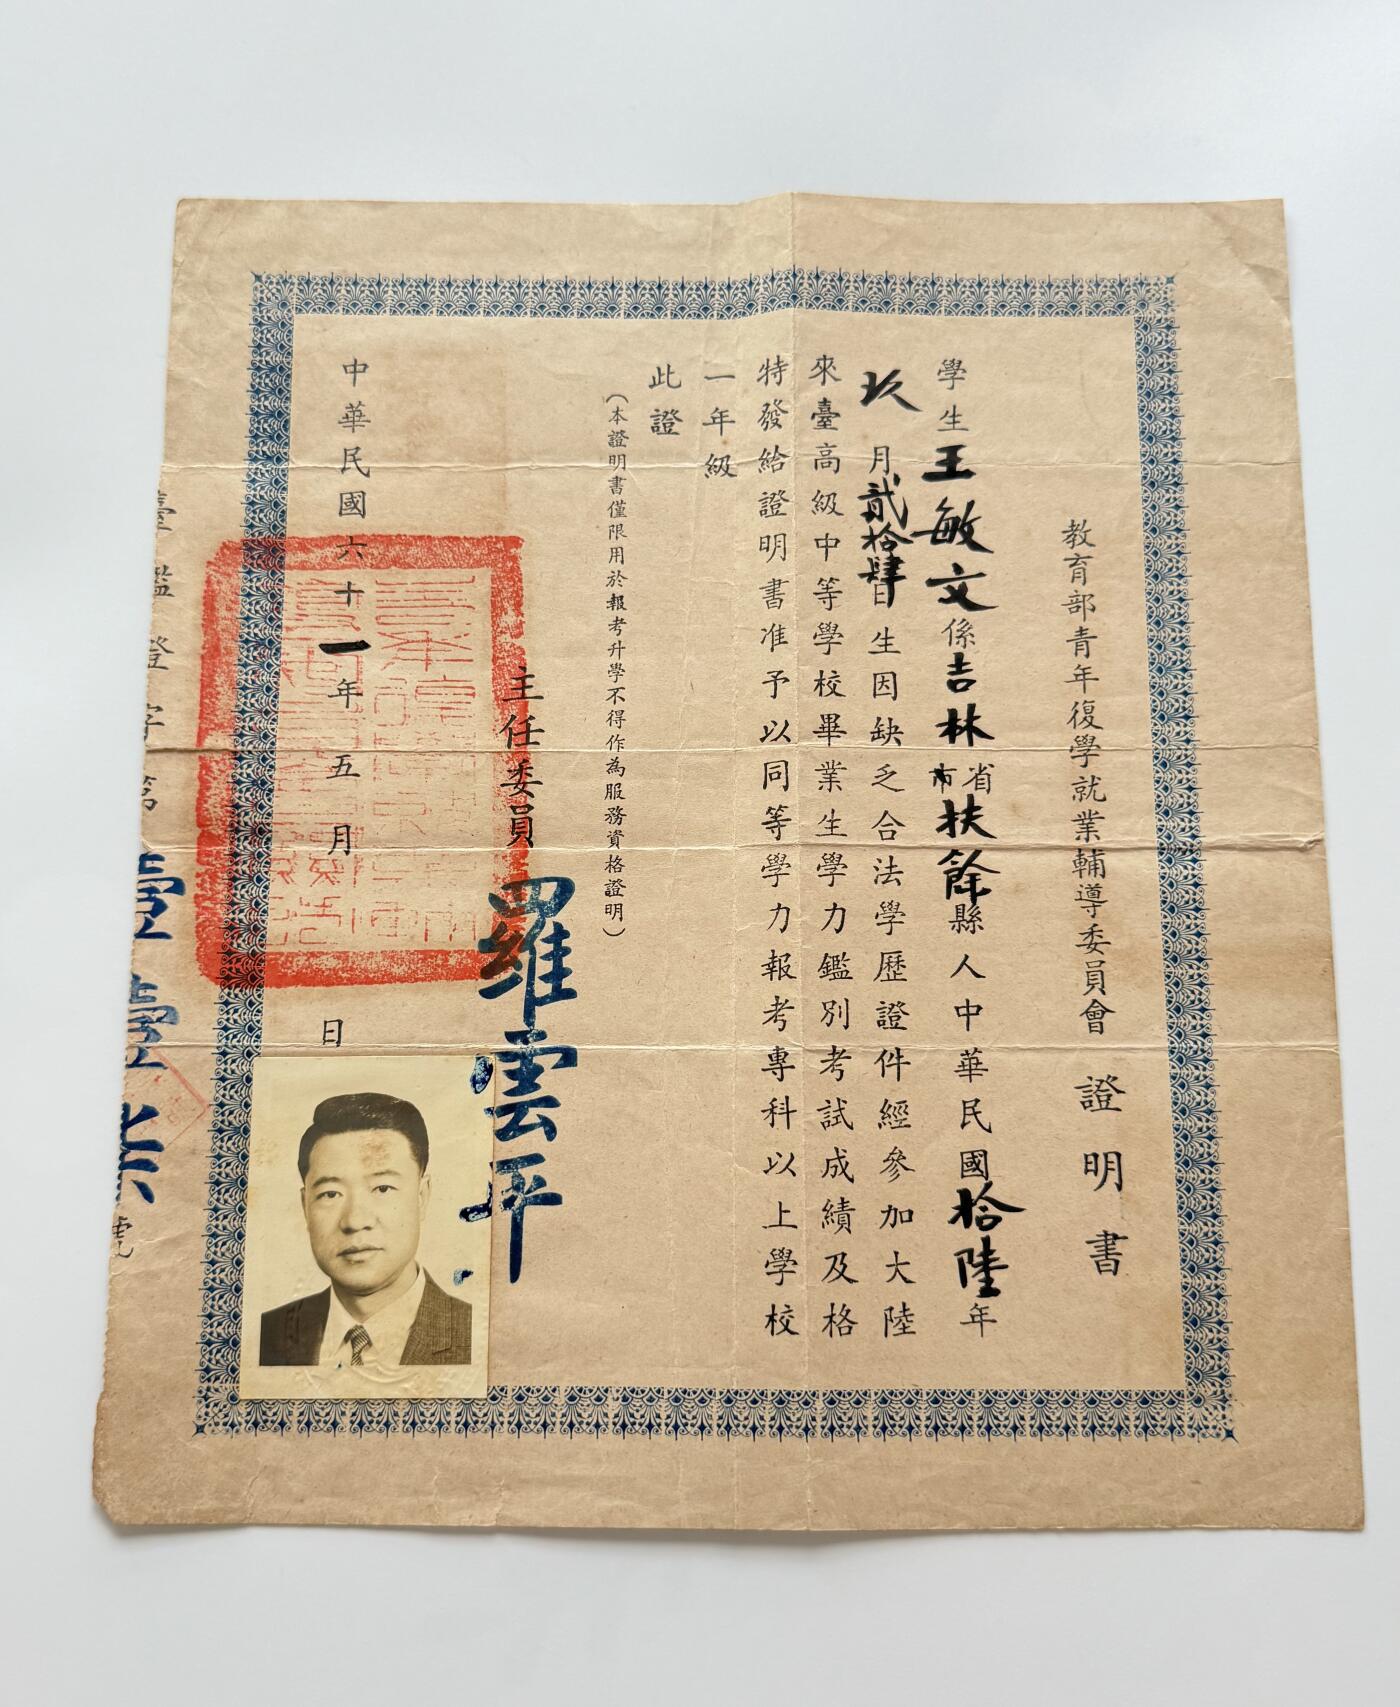 教育部青年復學就業輔導委員會 證明書
學生王敏文係吉林省市扶餘縣人中華民國拾陸年
玖月貳拾肆日生因缺乏合法學歷證件經參加大陸
來臺高級中等學校畢業生學力鑑別考試成績及格
特發給證明書准予以同等學力報考專科以上學校
一年級
此證
(本證明書僅限用於報考升學不得作為服務資格證明)
主任委員 羅雲平
中華民國六十一年五月 日
臺鑑證字第壹壹柒號